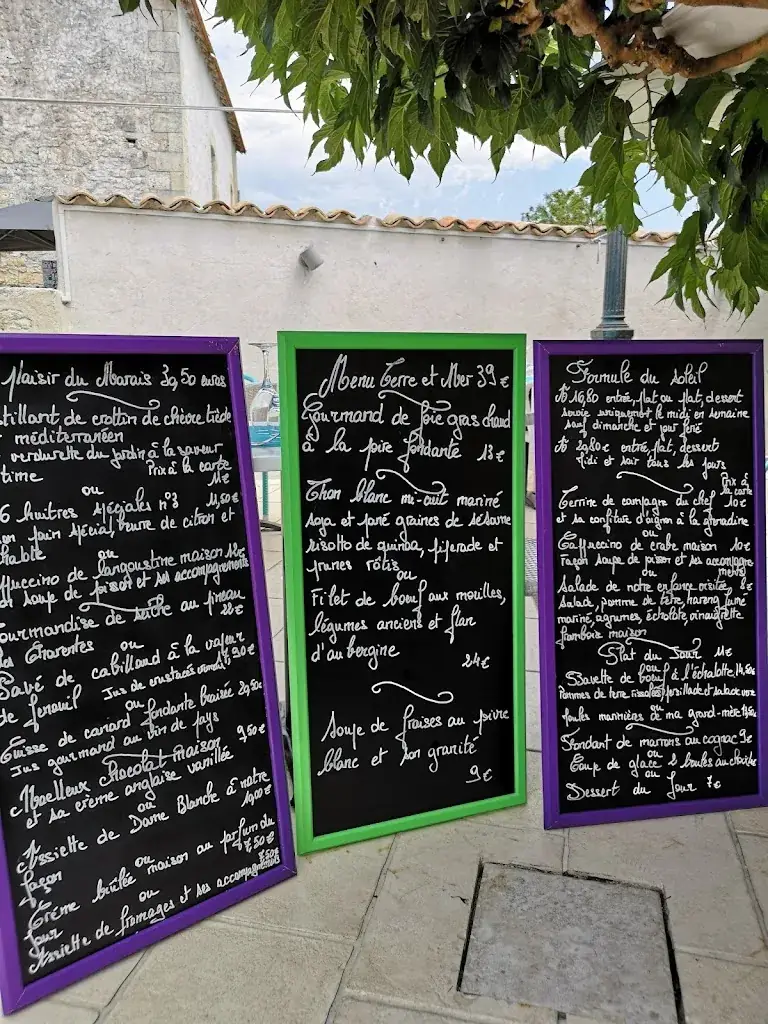 Plaisir du Marais 39,50 euros
tillant de crottin de chèvre tiède
méditerranéen
verdurette du jardin à la saveur
Prix à la carte
11€
ou
6 huîtres spéciales n°3 11,50€
pain spécial, beurre de citron et
ou
ccino de langoustine maison 12€
soupe de poisson et ses accompagnements
ourmandise de seiche au pineau
des Charentes 22€
ou
Pavé de cabillaud à la vapeur
de fenouil Jus de crustacés
ou
Cuisse de canard fondante braisée 29,50€
Jus gourmand au vin de pays
Moelleux chocolat maison
et sa crème anglaise vanillée 9,50€
ou
Assiette de Dame Blanche à notre
façon 10,00€
ou
Crème brûlée maison au parfum du
jour 7,50€
ou
Assiette de fromages et ses accompagnements
7,50€
Menu Terre et Mer 39€
Gourmand de foie gras chaud
à la poire fondante 13€
Thon blanc mi-cuit mariné
soja et pané graines de sésame
risotto de quinoa, piperade et
prunes rôtis
ou
Filet de boeuf aux morilles,
légumes anciens et flan
d'aubergine
24€
Soupe de fraises au poivre
blanc et son granité
9€
Formule du soleil
A 16,80 entrée, plat ou plat, dessert
servie uniquement le midi en semaine
sauf dimanche et jour férié
A 29,80€ entrée, plat, dessert
Midi et soir tous les jours
Prix à
la carte
Terrine de campagne du chef 10€
et sa confiture d'oignon à la grenadine
ou
Cappuccino de crabe maison 10€
Façon soupe de poisson et ses accompagne
ments
ou
Salade de notre enfance revisitée 8€
Salade, pomme de terre, hareng fumé
mariné, agrumes, échalote, vinaigrette
framboise maison
Plat du Jour 11€
ou
Bavette de boeuf à l'échalotte 14,50€
Pommes de terre rissolées, persillade et salade verte
ou
Moules marinières de ma grand-mère
Fondant de marrons au cognac 9€
ou
Coupe de glace 2 boules au choix
ou
Dessert du Jour 7€